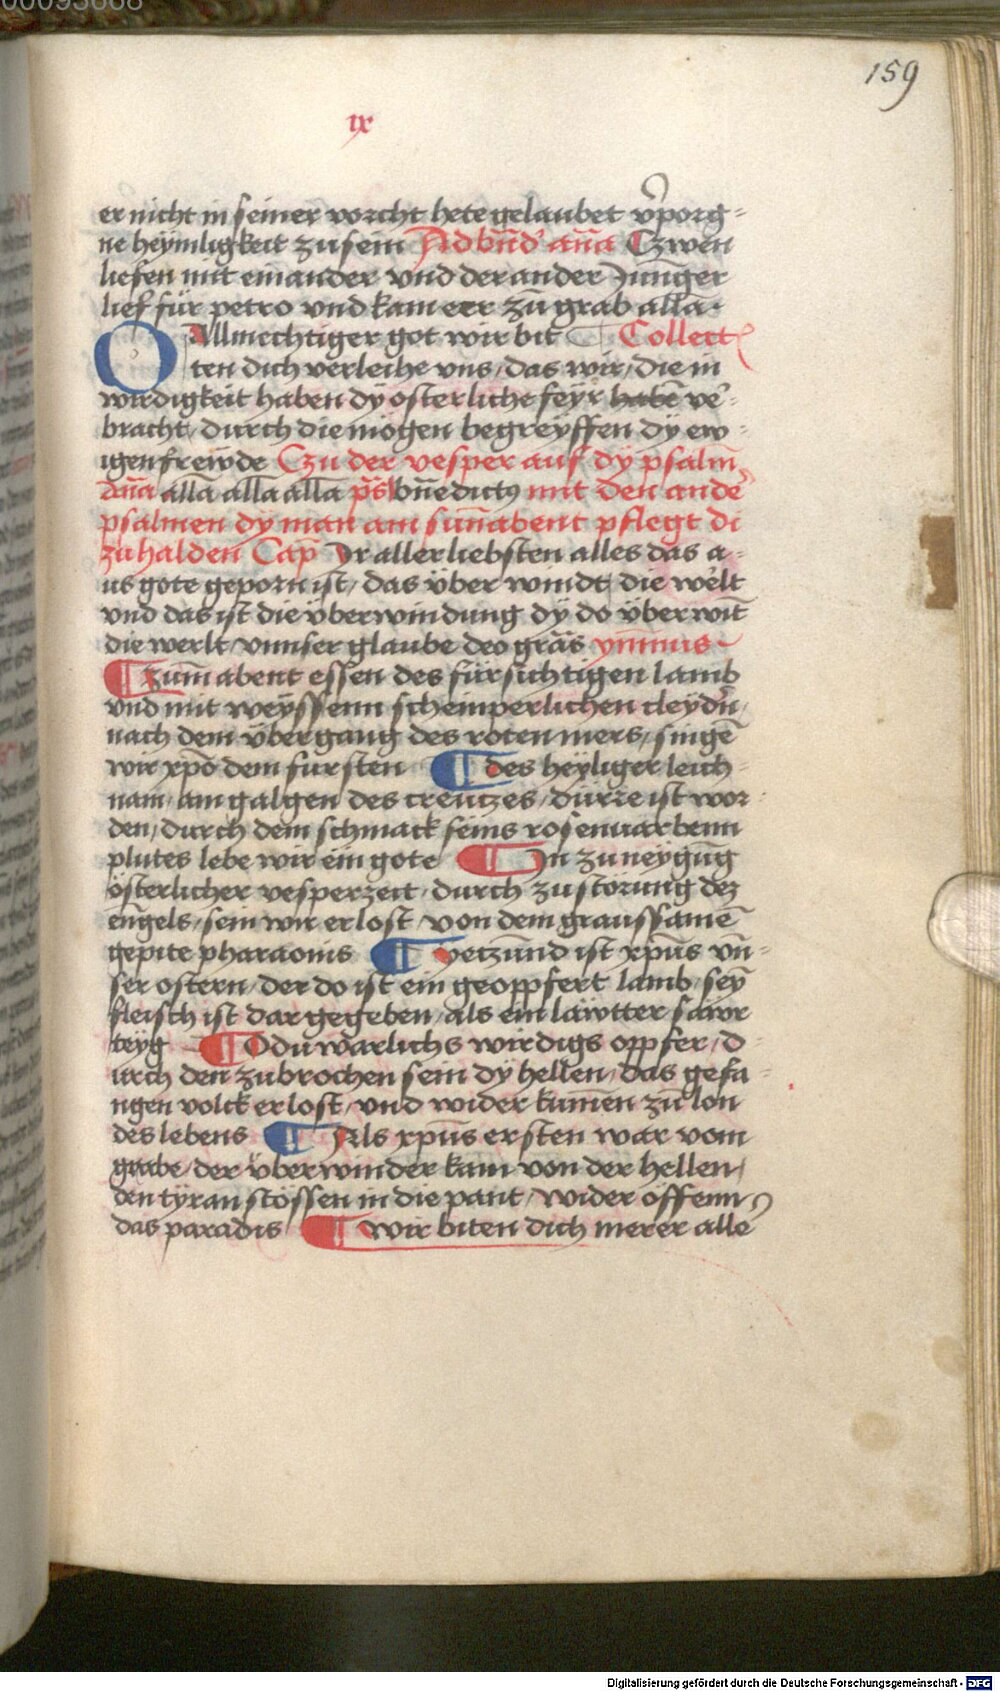 00093668
159
ix
er nicht in seiner vorcht hete gelaubet v̉porg-
ne heÿmligkeit zu sein Ad bn̄d' an̄a Czwen
liefen mit einander vnd der ander Jun̄ger
lief für petro vnd kam eer zu grab alla·
O Allmechtiger got wir bit Collect
ten dich verleihe vns, das wir, die in
wirdigkeit haben dÿ osterliche feÿr haben ve'-
bracht, durch die mogen begreÿffen dÿ ew-
igen freẅde Czu der vesper auf dÿ psalm̄
an̄a alla alla alla ps̄ bn̄edictꝰ mit den ande'
psalmen dÿ man am sun̄abent pflegt di
zu halden Cap̄ Ir allerliebsten alles das a-
us gote geporn ist, das über windt die we'lt
vnd das ist die überwindung dÿ do überwīt
die werlt vnnser glaube deo grās ymn̄us
¶ Zum̄ abent essen des fürsichtigen lamb
vnd mit weÿssenn scheinperlichen cleydn̄,
nach dem übergang des roten mers, singē
wir xp̄o dem fursten ¶ des heÿliger leich-
nam, am galgen des creützes, dürre ist wor-
den, durch dem schmack seins rosenuarbenn
plutes lebe wir ein gote ¶ In zuneÿgūg
österlicher vesperzeit, durch zustörung dez
engels, sein wir erlost, von dem graussamē
gepite pharaonis ¶ yetzund ist xp̄us vn̄-
ser ostern, der do ist ein geoppfert lamb, seÿ
fleisch ist dar gegeben, als ein läwtter sawr
teÿg ¶ O du warlichs wirdigs oppfer, d-
urch den zubrochen sein dÿ hellen, das gefa-
ngen volck erlost, vnd wider kumen zu lon
des lebens ¶ Als xp̄us ersten war vom
grabe, der überwinder kam von der hellen,
den tÿran stössen in die pant, wider offenn
das paradis ¶ wir biten dich merer alle
Digitalisierung gefördert durch die Deutsche Forschungsgemeinschaft - DFG